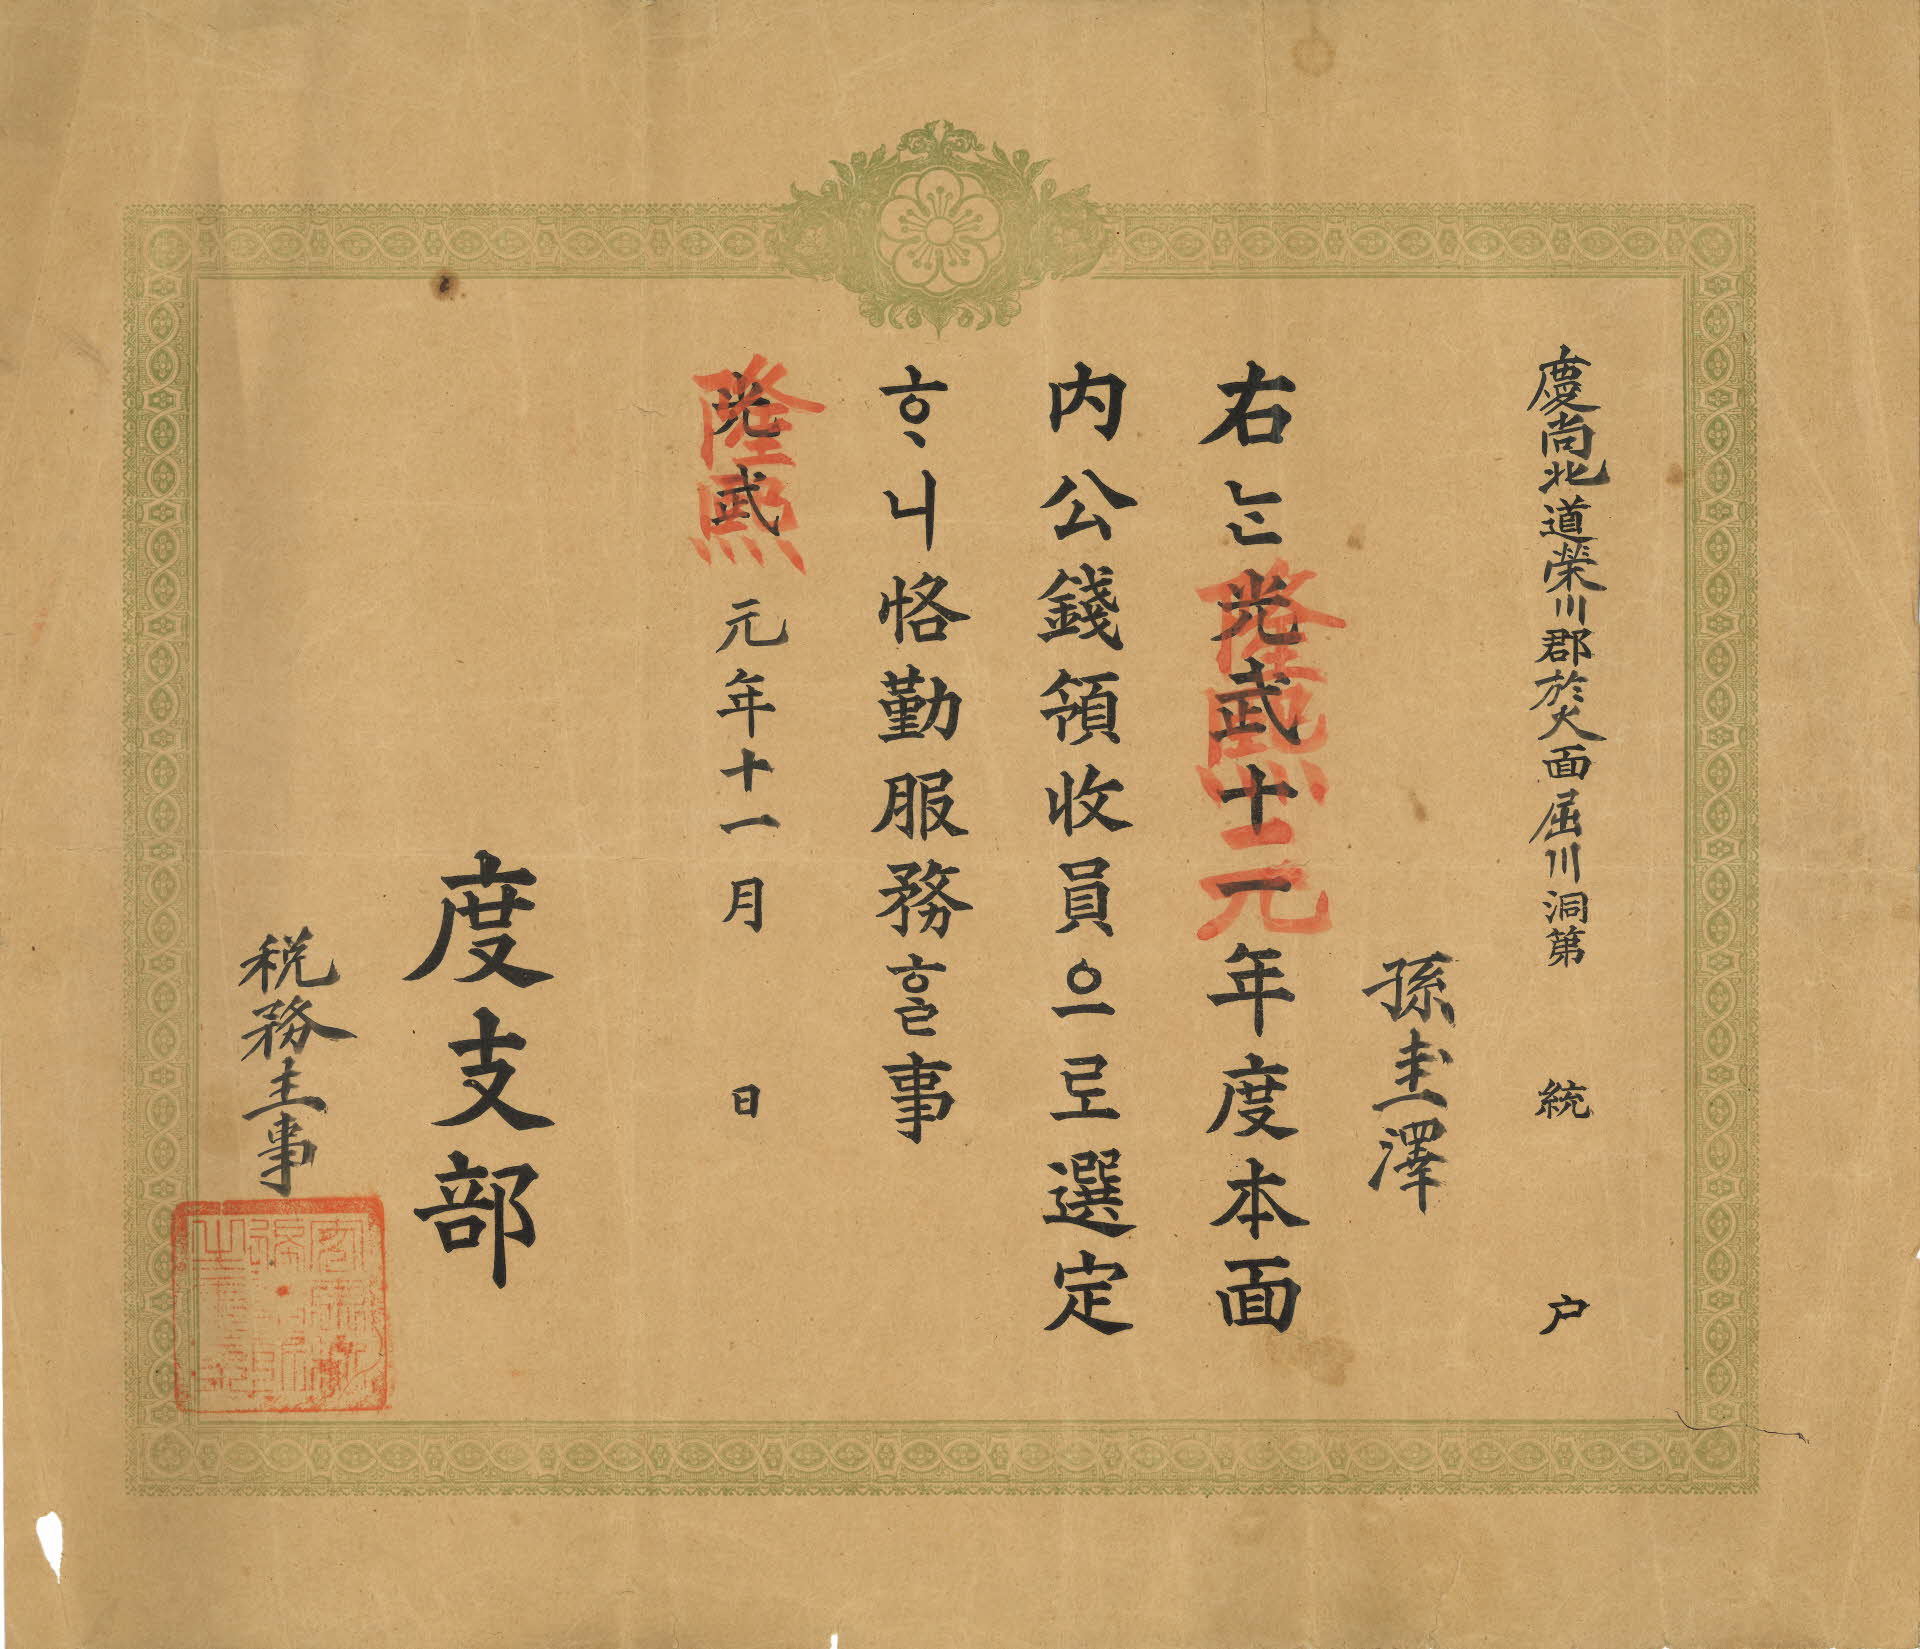 慶尚北道榮川郡於火面屈川洞第 統 户
孫圭澤
右는光武十一年度本面
隆熙元
内公錢領收員으로選定
ᄒᆞ니恪勤服務ᄒᆞᆯ事
光武元年十一月 日
隆熙
度支部
税務主事